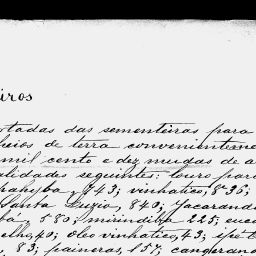 iros
otadas das sementeiras para
heios de terra convenienteme
mil cento e dez mudas de a
alidades seguintes: louro par
pahyba, 843; vinhatico, 836;
Santa Luzia, 840; Jacarand
bá, 580; mirindiba 225; euca
elho, 40; oleo vinhatico, 43; ipé t
83; paineras, 157; cangerana